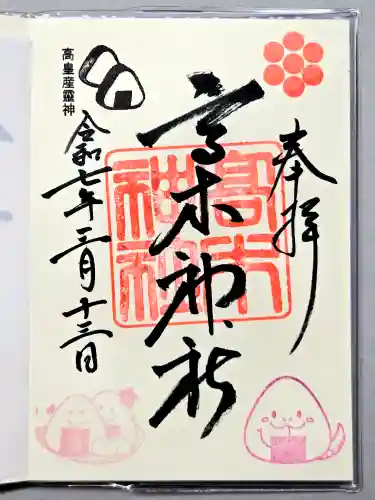 奉拝
高木神社
高木神社
高皇産靈神
令和七年三月十三日